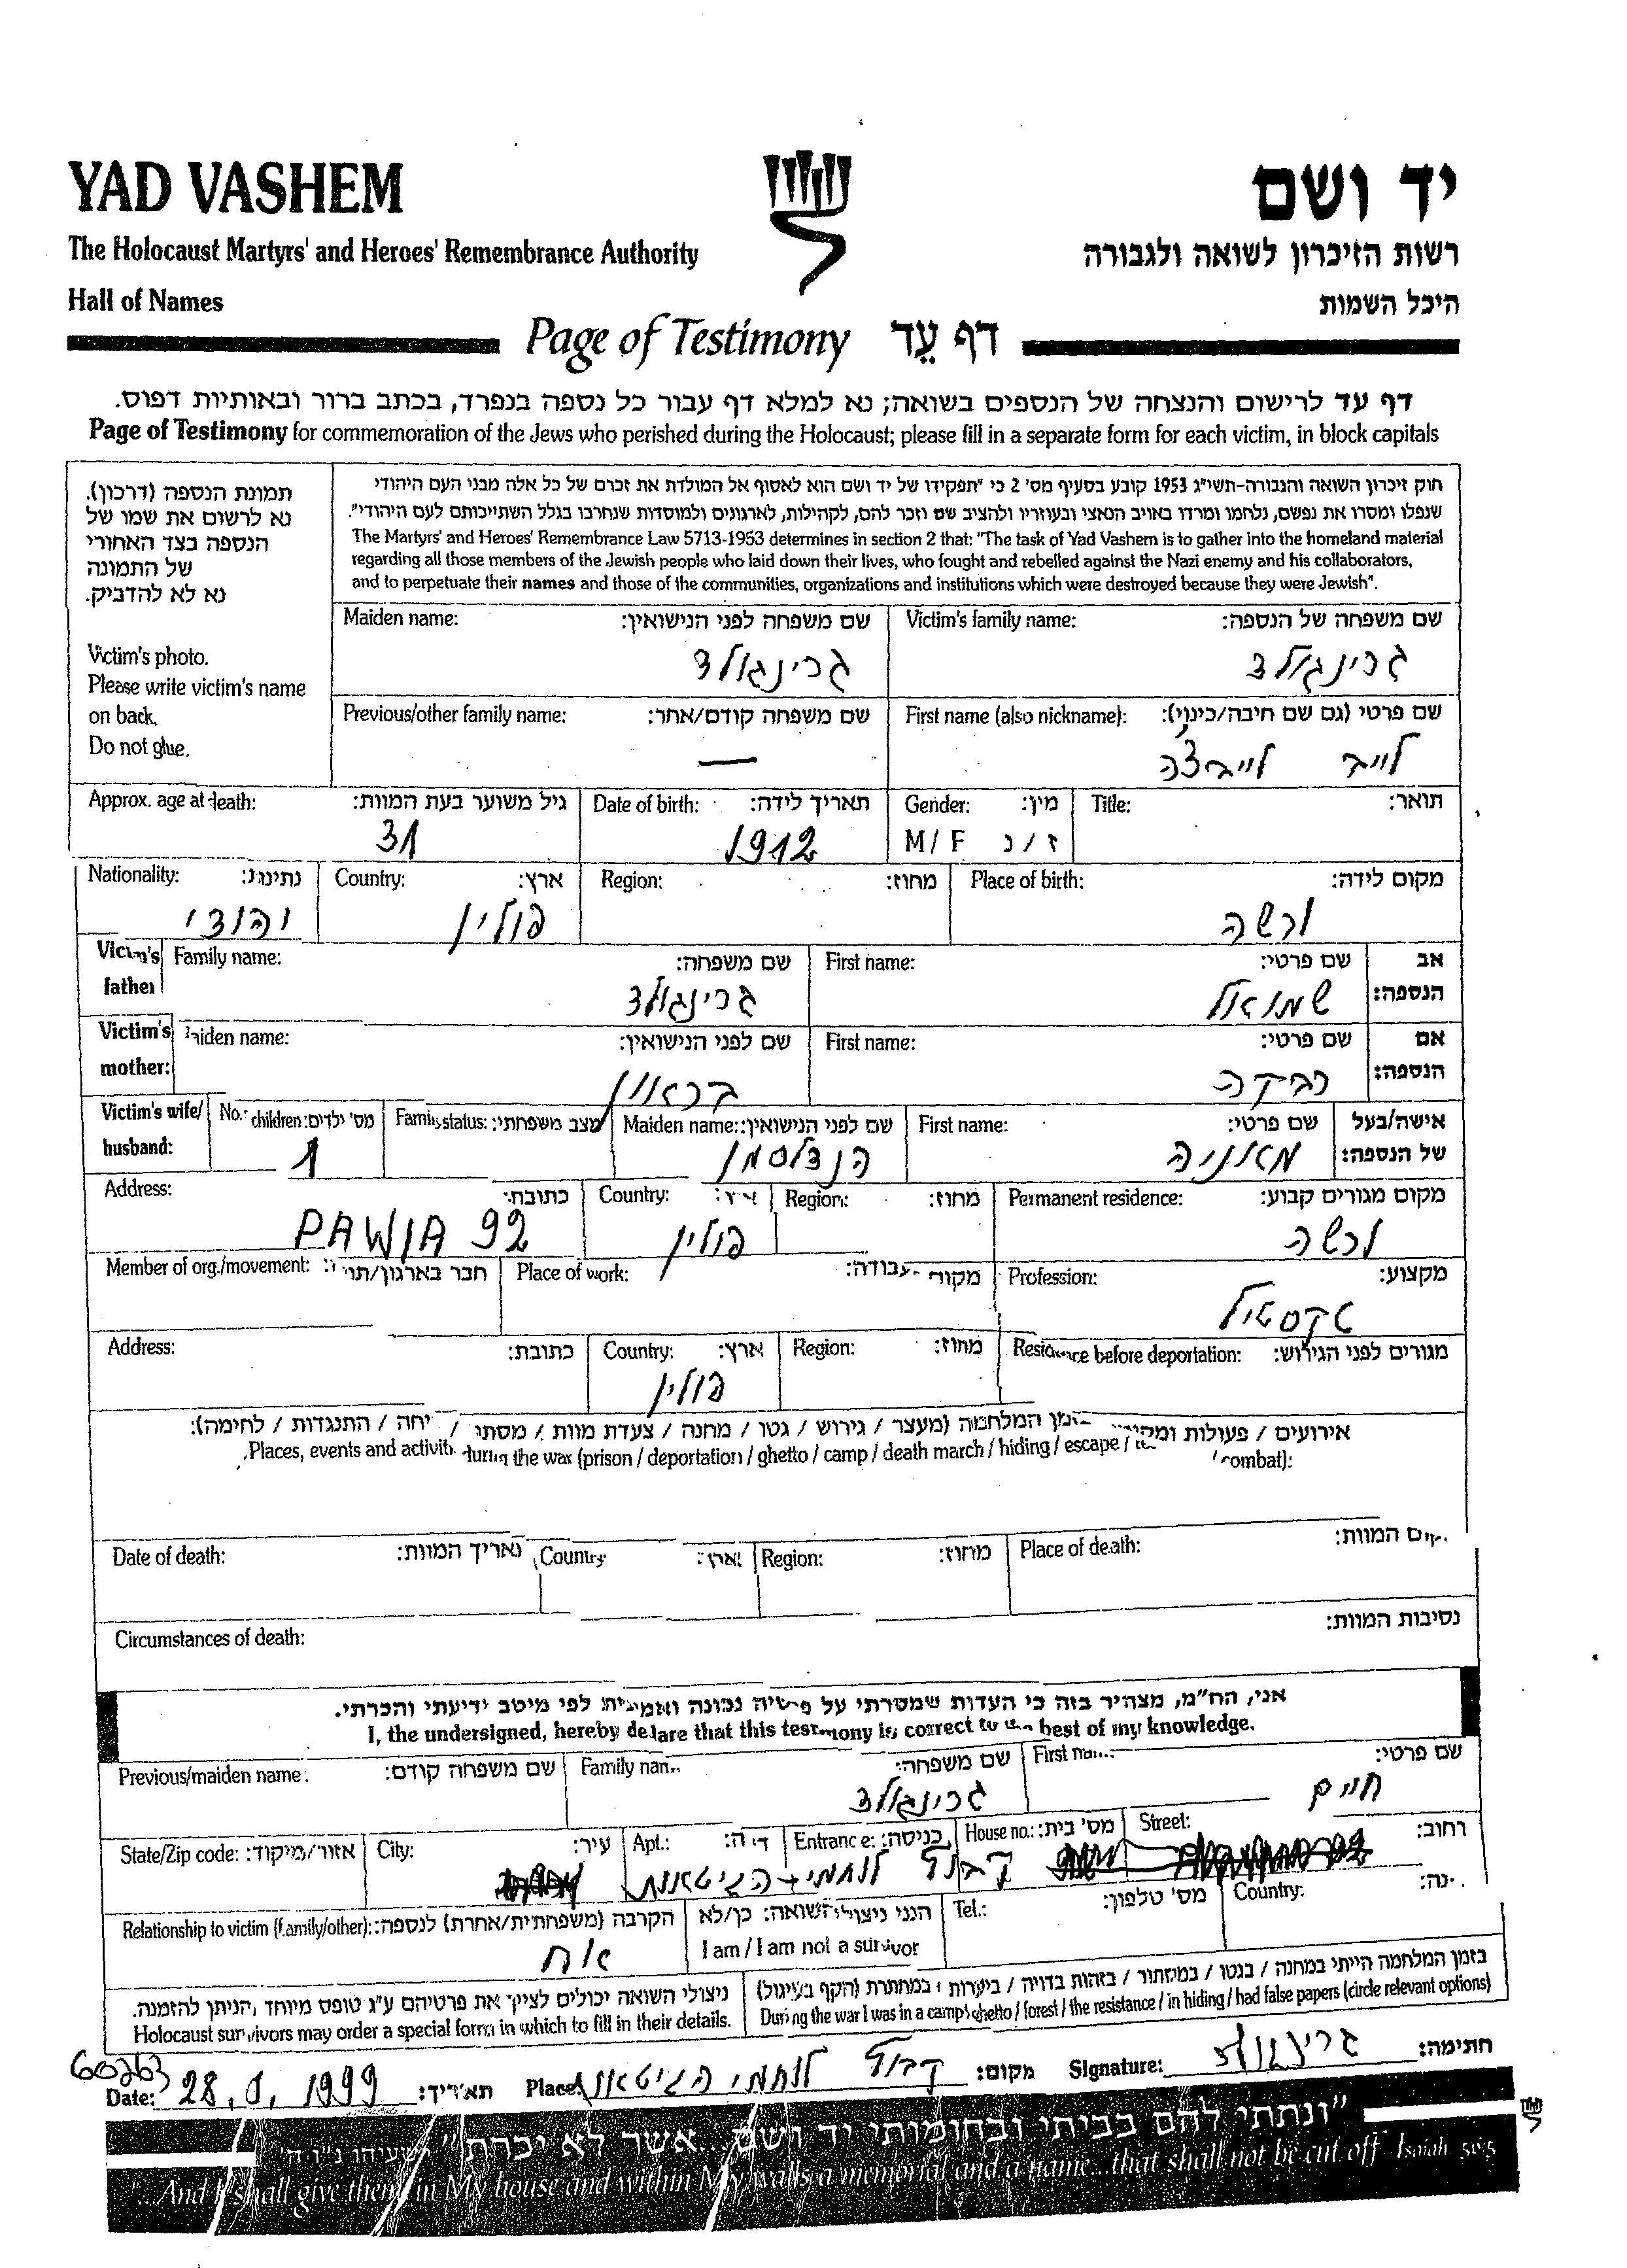 YAD VASHEM
יד ושם
The Holocaust Martyrs' and Heroes' Remembrance Authority
רשות הזיכרון לשואה ולגבורה
Hall of Names
היכל השמות
Page of Testimony דף עֵד
דף עד לרישום והנצחה של הנספים בשואה; נא למלא דף עבור כל נספה בנפרד, בכתב ברור ובאותיות דפוס.
Page of Testimony for commemoration of the Jews who perished during the Holocaust; please fill in a separate form for each victim, in block capitals
תמונת הנספה (דרכון).
נא לרשום את שמו של
הנספה בצד האחורי
של התמונה
נא לא להדביק.
Victim's photo.
Please write victim's name
on back.
Do not glue.
חוק זיכרון השואה והגבורה-תשי"ג 1953 קובע בסעיף מס' 2 כי "תפקידו של יד ושם הוא לאסוף אל המולדת את זכרם של כל אלה מבני העם היהודי
שנפלו ומסרו את נפשם, נלחמו ומרדו באויב הנאצי ובעוזריו ולהציב שם וזכר להם, לקהילות, לארגונים ולמוסדות שנחרבו בגלל השתייכותם לעם היהודי".
The Martyrs' and Heroes' Remembrance Law 5713-1953 determines in section 2 that: "The task of Yad Vashem is to gather into the homeland material
regarding all those members of the Jewish people who laid down their lives, who fought and rebelled against the Nazi enemy and his collaborators,
and to perpetuate their names and those of the communities, organizations and institutions which were destroyed because they were Jewish".
Maiden name: שם משפחה לפני הנישואין: Victim's family name: שם משפחה של הנספה:
גרינגולד גרינגולד
Previous/other family name: שם משפחה קודם/אחר: First name (also nickname): שם פרטי (גם שם חיבה/כינוי):
— לייב לייבצ'ה
Approx. age at death: גיל משוער בעת המוות: Date of birth: תאריך לידה: Gender: מין: Title: תואר:
31 1912 M / F ז / נ
Nationality: נתינות: Country: ארץ: Region: מחוז: Place of birth: מקום לידה:
יהודי פולין ורשה
Victim's father Family name: שם משפחה: First name: שם פרטי: אב הנספה:
גרינגולד שמואל
Victim's mother: aiden name: שם לפני הנישואין: First name: שם פרטי: אם הנספה:
בראון רבקה
Victim's wife/ husband: No. children: מס' ילדים: Family status: מצב משפחתי: Maiden name: שם לפני הנישואין: First name: שם פרטי: אישה/בעל של הנספה:
1 הנדלסמן מאניה
Address: כתובת: Country: Region: מחוז: Permanent residence: מקום מגורים קבוע:
PAWIA 92 פולין ורשה
Member of org./movement: חבר בארגון/ Place of work: מקום עבודה: Profession: מקצוע:
טקסטיל
Address: כתובת: Country: ארץ: Region: מחוז: Residence before deportation: מגורים לפני הגירוש:
פולין
אירועים / פעולות המלחמה (מעצר / גירוש / גטו / מחנה / צעדת מוות / מסתו / יחה / התנגדות / לחימה):
Places, events and activit during the war (prison / deportation / ghetto / camp / death march / hiding / escape / combat):
Date of death: תאריך המוות: Country Region: מחוז: Place of death: המוות:
Circumstances of death: נסיבות המוות:
אני, הח"מ, מצהיר בזה כי העדות שמסרתי על פרטיה נכונה ואמיתית לפי מיטב ידיעתי והכרתי.
I, the undersigned, hereby declare that this testimony is correct to the best of my knowledge.
Previous/maiden name: שם משפחה קודם: Family nam שם משפחה: First na שם פרטי:
גרינגולד חיים
State/Zip code: אזור/מיקוד: City: עיר: Apt.: Entrance: כניסה: House no.: מס' בית: Street: רחוב:
קבוץ לוחמי-הגיטאות
Relationship to victim (family/other): הקרבה (משפחתית/אחרת) לנספה: הנני ניצול השואה: כן/לא Tel.: מס' טלפון: Country:
אח I am / I am not a survivor
ניצולי השואה יכולים לציין את פרטיהם ע"ג טופס מיוחד, הניתן להזמנה.
Holocaust survivors may order a special form in which to fill in their details.
בזמן המלחמה הייתי במחנה / בגטו / במסתור / בזהות בדויה / ביערות / במחתרת (הקף בעיגול)
During the war I was in a camp / ghetto / forest / the resistance / in hiding / had false papers (circle relevant options)
Date: 28. 1999 תאריך: Place: קבוץ לוחמי הגיטאות מקום: Signature: חתימה:
"ונתתי להם בביתי ובחומותי יד ושם...אשר לא יכרת" ישעיהו נ"ו ה
"...And I shall give them in My house and within My walls a memorial and a name...that shall not be cut off" Isaiah 56:5